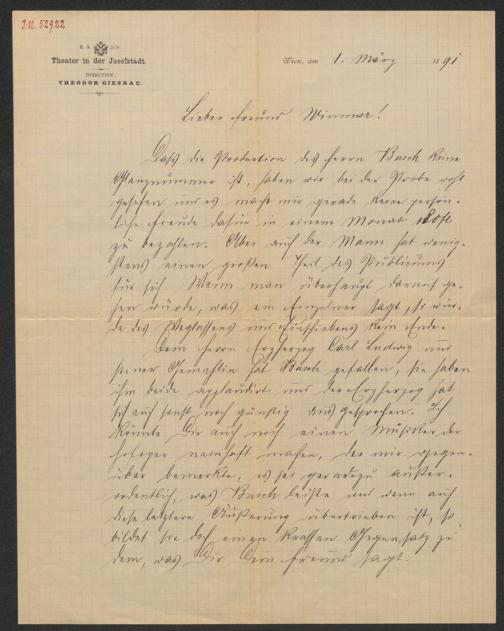 J.N. 52982
K. k. priv.
Theater in der Josefstadt.
DIRECTION:
THEODOR GIESRAU.
Wien, am 1. März 1891
Lieber Freund Wimmer!
Daß die Production des Herrn Busch keine
Glanznummer ist, haben wir bei der Probe wohl
gesehen und es macht mir gerade keine persön-
liche Freude dafür in einem Monat
zu bezahlen. Aber auch der Mann hat wenig-
stens einen großen Theil des Publicums
für sich. Wenn man überhaupt darauf ge-
hen würde, was ein Einzelner sagt, so wür-
de des Weglassens und Einschiebens kein Ende.
Dem Herrn Erzherzog Carl Ludwig und
seiner Gemahlin hat Busch gefallen, sie haben
ihm beide applaudirt und der Erzherzog hat
sich auch sonst noch günstig ausgesprochen. Ich
könnte Dir auch noch einen Musiker der
Hofoper namhaft machen, der mir gegen-
über bemerkte, es sei geradezu außer-
ordentlich, was Busch leiste und wenn auch
diese letztere Äußerung übertrieben ist, so
bildet sie doch einen krassen Gegensatz zu
dem, was Dir Dein Freund sagt.